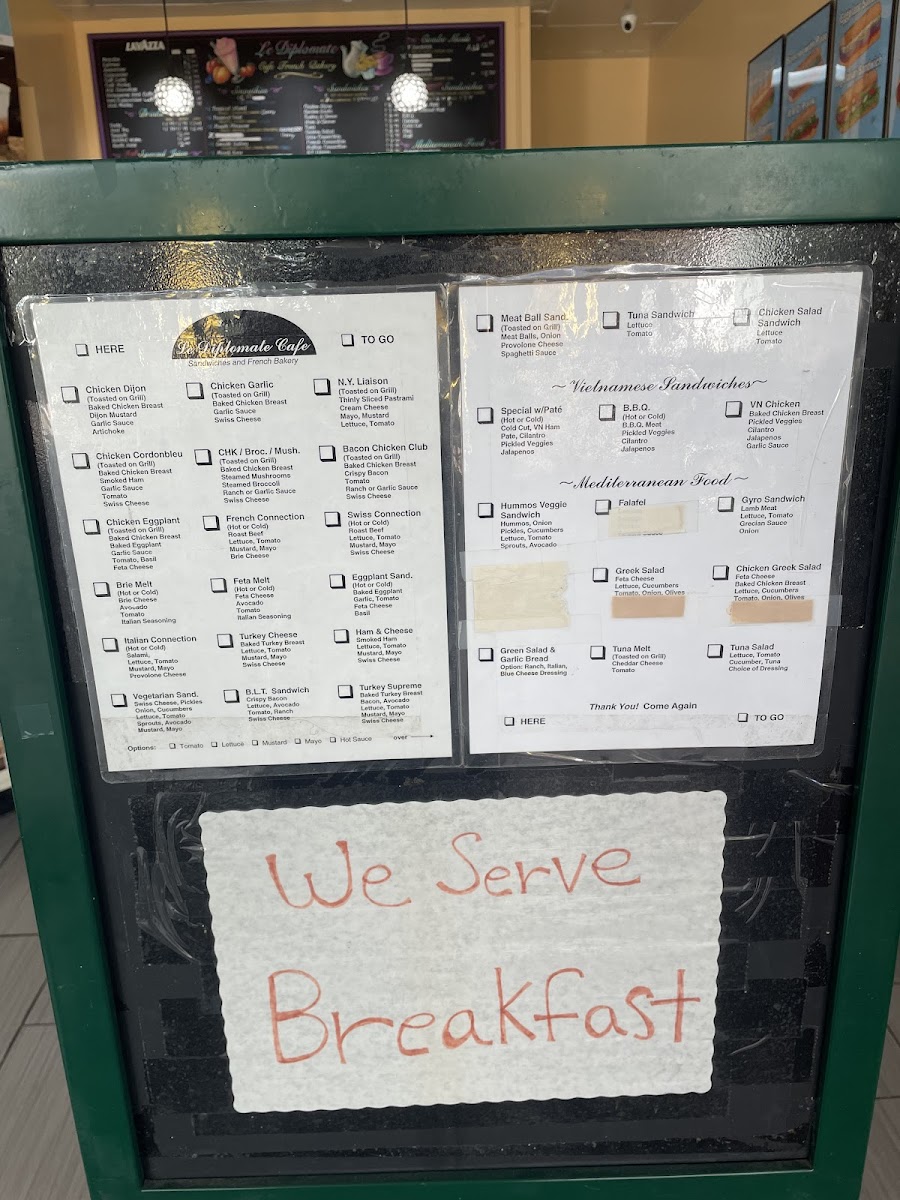 LAVAZZA
Le Diplomate
Cafe French Bakery
Smoothies
Sandwiches
Sandwiches
Mediterranean Food
HERE
Le Diplomate Cafe
Sandwiches and French Bakery
TO GO
Chicken Dijon
(Toasted on Grill)
Baked Chicken Breast
Dijon Mustard
Garlic Sauce
Artichoke
Chicken Garlic
(Toasted on Grill)
Baked Chicken Breast
Garlic Sauce
Swiss Cheese
N.Y. Liaison
(Toasted on Grill)
Thinly Sliced Pastrami
Cream Cheese
Mayo, Mustard
Lettuce, Tomato
Chicken Cordonbleu
(Toasted on Grill)
Baked Chicken Breast
Smoked Ham
Garlic Sauce
Tomato
Swiss Cheese
CHK / Broc. / Mush.
(Toasted on Grill)
Baked Chicken Breast
Steamed Mushrooms
Steamed Broccoli
Ranch or Garlic Sauce
Swiss Cheese
Bacon Chicken Club
(Toasted on Grill)
Baked Chicken Breast
Crispy Bacon
Tomato
Ranch or Garlic Sauce
Swiss Cheese
Chicken Eggplant
(Toasted on Grill)
Baked Chicken Breast
Baked Eggplant
Garlic Sauce
Tomato, Basil
Feta Cheese
French Connection
(Hot or Cold)
Roast Beef
Lettuce, Tomato
Mustard, Mayo
Brie Cheese
Swiss Connection
(Hot or Cold)
Roast Beef
Lettuce, Tomato
Mustard, Mayo
Swiss Cheese
Brie Melt
(Hot or Cold)
Brie Cheese
Avocado
Tomato
Italian Seasoning
Feta Melt
(Hot or Cold)
Feta Cheese
Avocado
Tomato
Italian Seasoning
Eggplant Sand.
(Hot or Cold)
Baked Eggplant
Garlic, Tomato
Feta Cheese
Basil
Italian Connection
(Hot or Cold)
Salami,
Lettuce, Tomato
Mustard, Mayo
Provolone Cheese
Turkey Cheese
Baked Turkey Breast
Lettuce, Tomato
Mustard, Mayo
Swiss Cheese
Ham & Cheese
Smoked Ham
Lettuce, Tomato
Mustard, Mayo
Swiss Cheese
Vegetarian Sand.
Swiss Cheese, Pickles
Onion, Cucumbers
Lettuce, Tomato
Sprouts, Avocado
Mustard, Mayo
B.L.T. Sandwich
Crispy Bacon
Lettuce, Avocado
Tomato, Ranch
Swiss Cheese
Turkey Supreme
Baked Turkey Breast
Bacon, Avocado
Lettuce, Tomato
Mustard, Mayo
Swiss Cheese
Options: Tomato Lettuce Mustard Mayo Hot Sauce over
Meat Ball Sand.
(Toasted on Grill)
Meat Balls, Onion
Provolone Cheese
Spaghetti Sauce
Tuna Sandwich
Lettuce
Tomato
Chicken Salad
Sandwich
Lettuce
Tomato
~Vietnamese Sandwiches~
Special w/Paté
(Hot or Cold)
Cold Cut, VN Ham
Pate, Cilantro
Pickled Veggies
Jalapenos
B.B.Q.
(Hot or Cold)
B.B.Q. Meat
Pickled Veggies
Cilantro
Jalapenos
VN Chicken
Baked Chicken Breast
Pickled Veggies
Cilantro
Jalapenos
Garlic Sauce
~Mediterranean Food~
Hummos Veggie
Sandwich
Hummos, Onion
Pickles, Cucumbers
Lettuce, Tomato
Sprouts, Avocado
Falafel
Gyro Sandwich
Lamb Meat
Lettuce, Tomato
Grecian Sauce
Onion
Greek Salad
Feta Cheese
Lettuce, Cucumbers
Tomato, Onion, Olives
Chicken Greek Salad
Feta Cheese
Baked Chicken Breast
Lettuce, Cucumbers
Tomato, Onion, Olives
Green Salad &
Garlic Bread
Option: Ranch, Italian,
Blue Cheese Dressing
Tuna Melt
(Toasted on Grill)
Cheddar Cheese
Tomato
Tuna Salad
Lettuce, Tomato
Cucumber, Tuna
Choice of Dressing
Thank You! Come Again
HERE
TO GO
We Serve
Breakfast